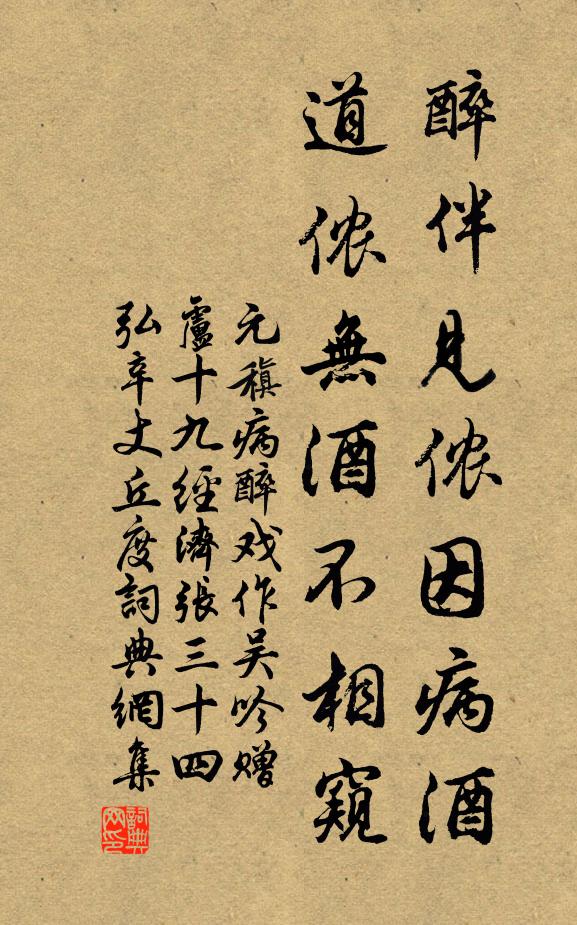 醉伴見侬因病酒
道侬無酒不相窺
元稹病醉戏作吴吟赠
盧十九經濟張三十四
弘辛丈丘度詞典網集
詞典
网印